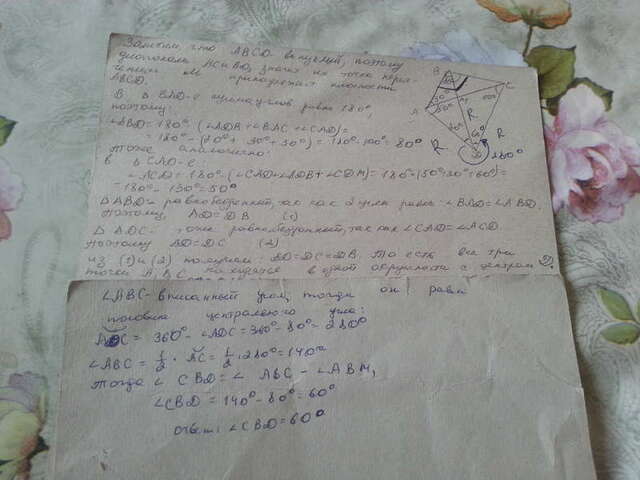 Заметим, что ABCD - выпуклый, поэтому
диагонали AC и BD, значит их точка пересе-
чения M принадлежит плоскости
ABCD.
В Δ BAD - сумма углов равна 180°,
поэтому:
∠ABD = 180° - (∠ADB + ∠BAC + ∠CAD) =
= 180° - (20° + 30° + 50°) = 180° - 100° = 80°
Тоже аналогично:
В Δ CAD - :
∠ACD = 180° - (∠CAD + ∠ADB + ∠CDM) = 180° - (50° + 20° + 60°) =
= 180° - 130° = 50°
Δ ABD - равнобедренный, так как 2 угла равны ∠BAD = ∠ABD.
Поэтому, AD = DB (1)
Δ ADC - , тоже равнобедренный, так как ∠CAD = ∠ACD.
Поэтому AD = DC (2)
из (1) и (2) получаем: AD = DC = DB. То есть все три
точки A, B, C находятся в одной окружности с центром D.
∠ABC - вписанный угол, тогда он равен
половине центрального угла:
ADC = 360° - ∠ADC = 360° - 80° = 280°
∠ABC = 1/2 · AC = 1/2 · 280° = 140°
Тогда ∠ CBD = ∠ ABC - ∠ABM,
∠CBD = 140° - 80° = 60°
ответ: ∠CBD = 60°
B
C
A
M
R
R
R
280°